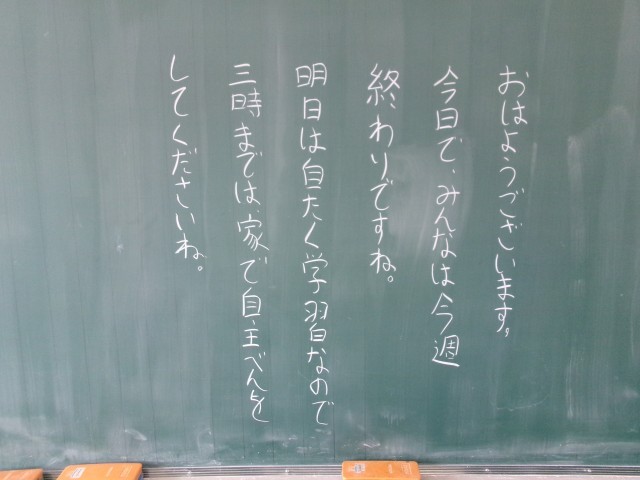 おはようございます。
今日で、みんなは今週
終わりですね。
明日は自たく学習なので
三時までは、家で自主べんを
してくださいね。